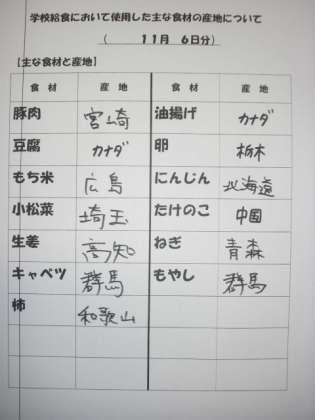 学校給食において使用した主な食材の産地について
（ 11月 6日分）
【主な食材と産地】
食 材 産 地 食 材 産 地
豚肉 宮崎 油揚げ カナダ
豆腐 カナダ 卵 栃木
もち米 広島 にんじん 北海道
小松菜 埼玉 たけのこ 中国
生姜 高知 ねぎ 青森
キャベツ 群馬 もやし 群馬
柿 和歌山